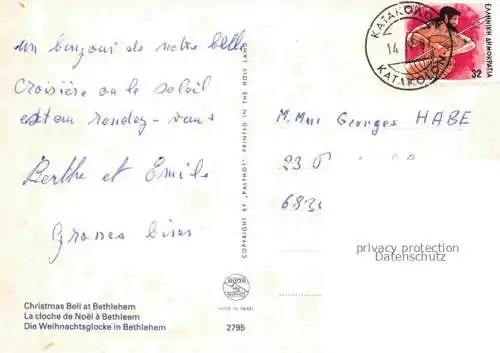 un bonjour de notre belle
Croisière ou le soleil
est au rendez-vous
Berthe et Emile
Grosses bises
Christmas Bell at Bethlehem
La cloche de Noël à Bethleem
Die Weihnachtsglocke in Bethlehem
2795
COPYRIGHT BY „PALPHOT” PRINTED IN THE HOLY LAND
MADE IN ISRAEL
KATAKOLON
14
KATAKOLON
ΕΛΛΗΝΙΚΗ ΔΗΜΟΚΡΑΤΙΑ
32
M. Mme Georges HABE
23
privacy protection
Datenschutz